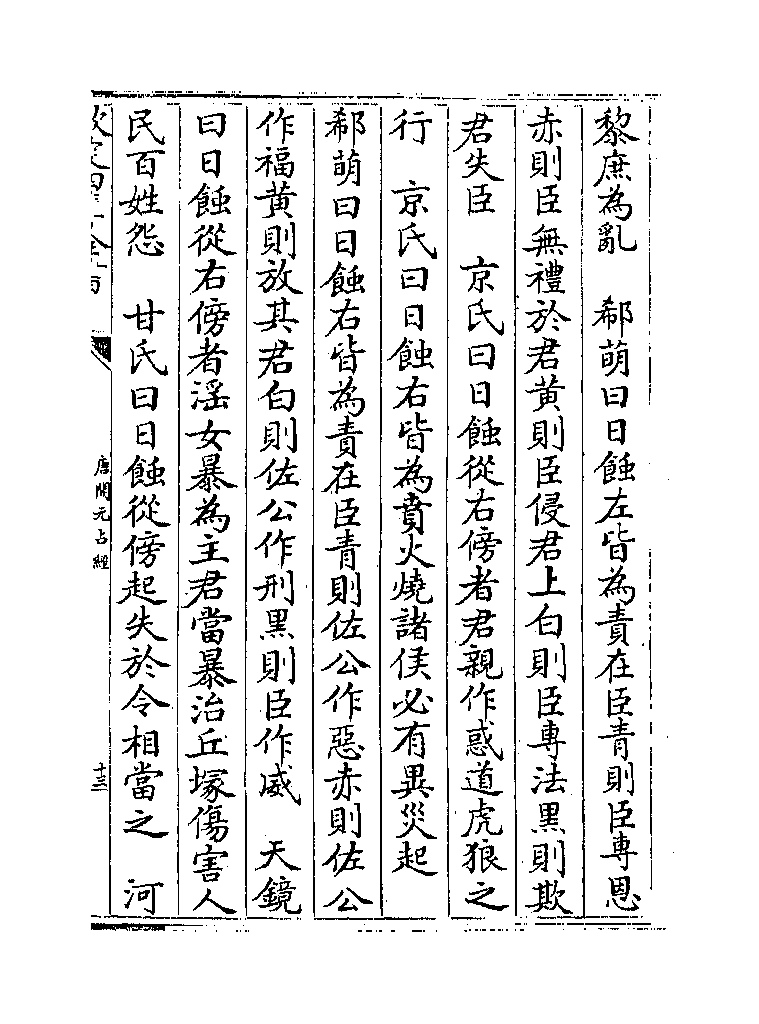 黎庶為亂　郗萌曰日蝕左皆為責在臣青則臣專恩
赤則臣無禮於君黃則臣侵君上白則臣專法黑則欺
君失臣　京氏曰日蝕從右傍者君親作惑道虎狼之
行　京氏曰日蝕右皆為賁火燒諸侯必有異災起
郗萌曰日蝕右皆為責在臣青則佐公作惡赤則佐公
作福黃則放其君白則佐公作刑黑則臣作威　天鏡
曰日蝕從右傍者滛女暴為主君當暴治丘塚傷害人
民百姓怨　甘氏曰日蝕從傍起失於令相當之　河
唐開元占經
十三